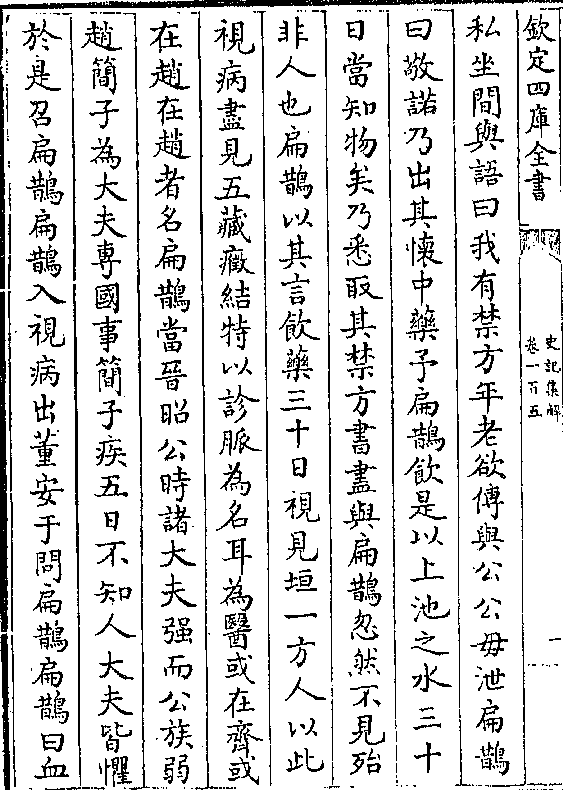 欽定四庫全書
史記集解
卷一百五
一
私坐間與語曰我有禁方年老欲傳與公公毋泄扁鵲
曰敬諾乃出其懷中藥予扁鵲飲是以上池之水三十
日當知物矣乃悉取其禁方書盡與扁鵲忽然不見殆
非人也扁鵲以其言飲藥三十日視見垣一方人以此
視病盡見五藏癥結特以診脈為名耳為醫或在齊或
在趙在趙者名扁鵲當晉昭公時諸大夫强而公族弱
趙簡子為大夫專國事簡子疾五日不知人大夫皆懼
於是召扁鵲扁鵲入視病出董安于問扁鵲扁鵲曰血